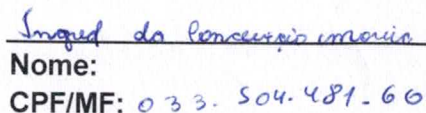 Ingred da Conceição morais
Nome:
CPF/MF: 033.504.481-60